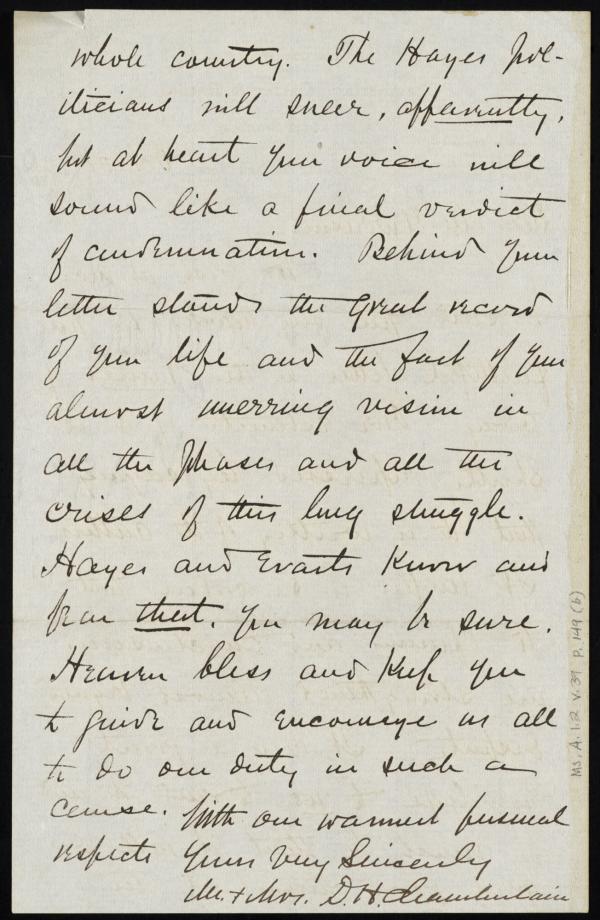 whole country. The Hayes pol-
iticians will sneer, apparently,
but at heart your voice will
sound like a final verdict
of condemnation. Behind your
letter stands the great record
of your life and the fact of your
almost unerring vision in
all the phases and all the
crises of this long struggle.
Hayes and Evarts know and
fear that, you may be sure.
Heaven bless and keep you
to guide and encourage us all
to do our duty in such a
cause. With our warmest personal
respects Yours Very Sincerely
Mr. + Mrs. D. H. Chamberlain
Ms. A. 1. 2 v. 39 p. 149 (b)